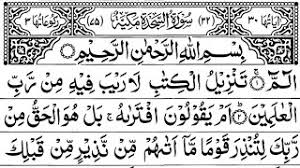 اٰيَاتُهَا ۳۰ (۳۲) سُوْرَةُ السَّجْدَةِ مَكِّيَّةٌ (۷۵) رُكُوْعَاتُهَا ۳
بِسْمِ اللّٰهِ الرَّحْمٰنِ الرَّحِيْمِ
الٓمّٓ ۝۱ تَنْزِيْلُ الْكِتٰبِ لَا رَيْبَ فِيْهِ مِنْ رَّبِّ
الْعٰلَمِيْنَ ۝۲ اَمْ يَقُوْلُوْنَ افْتَرٰىهُ ۚ بَلْ هُوَ الْحَقُّ مِنْ
رَّبِّكَ لِتُنْذِرَ قَوْمًا مَّاۤ اَتٰىهُمْ مِّنْ نَّذِيْرٍ مِّنْ قَبْلِكَ